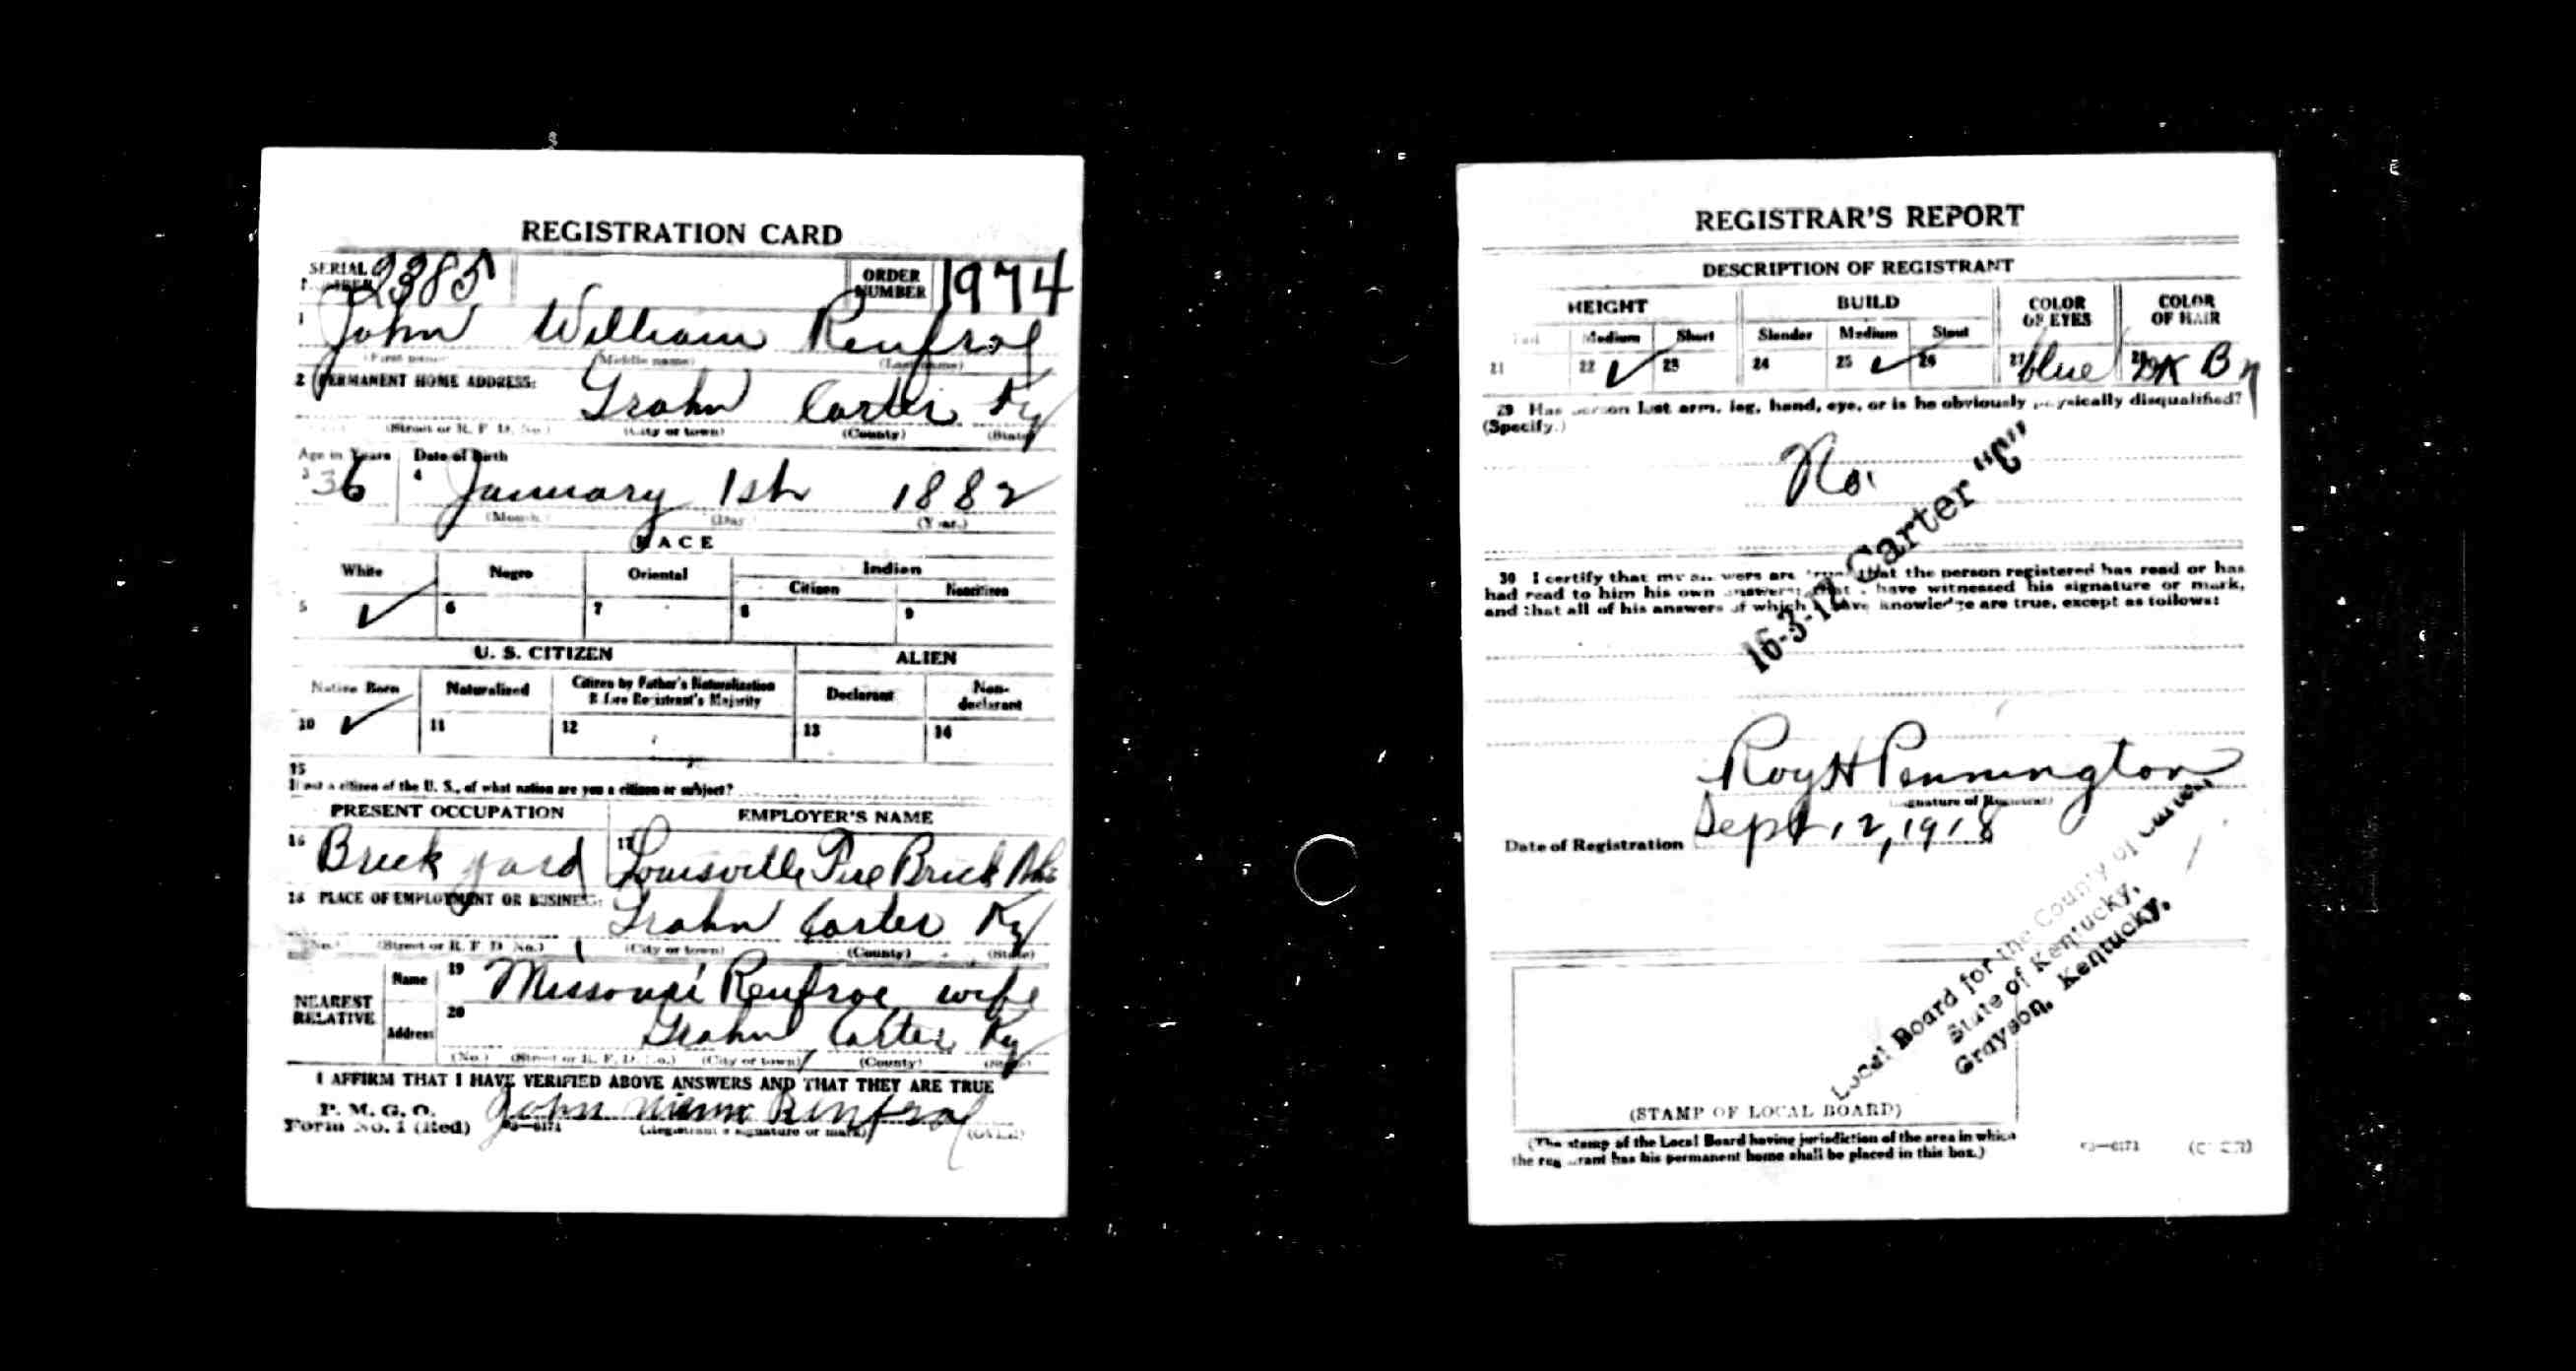 REGISTRATION CARD
SERIAL NUMBER 2385 ORDER NUMBER 1974
1 John William Renfroe
(First name) (Middle name) (Last name)
2 PERMANENT HOME ADDRESS:
Grahn Carter Ky
(Street or R. F. D. No.) (City or town) (County) (State)
Age in Years Date of Birth
3 36 4 January 1st 1882
(Month.) (Day.) (Year.)
RACE
White Negro Oriental Indian
Citizen Noncitizen
5 ✓ 6 7 8 9
U. S. CITIZEN ALIEN
Native Born Naturalized Citizen by Father's Naturalization Before Registrant's Majority Declarant Non-declarant
10 ✓ 11 12 13 14
15
If not a citizen of the U. S., of what nation are you a citizen or subject?
PRESENT OCCUPATION EMPLOYER'S NAME
16 Brick yard 17 Louisville Fire Brick
18 PLACE OF EMPLOYMENT OR BUSINESS:
Grahn Carter Ky
(No.) (Street or R. F. D. No.) (City or town) (County) (State)
NEAREST RELATIVE
Name 19 Missouri Renfroe wife
Address 20 Grahn Carter Ky
(No.) (Street or R. F. D. No.) (City or town) (County) (State)
I AFFIRM THAT I HAVE VERIFIED ABOVE ANSWERS AND THAT THEY ARE TRUE
P. M. G. O.
Form No. 1 (Red) John Renfroe
03—6171 (Registrant's signature or mark) (OVER)
REGISTRAR'S REPORT
DESCRIPTION OF REGISTRANT
HEIGHT BUILD COLOR OF EYES COLOR OF HAIR
Tall Medium Short Slender Medium Stout
21 22 ✓ 23 24 25 ✓ 26 27 blue 28 DK Bn
29 Has person lost arm, leg, hand, eye, or is he obviously physically disqualified?
(Specify.)
No.
16-3-12 Carter "C"
30 I certify that my answers are true; that the person registered has read or has
had read to him his own answers; that I have witnessed his signature or mark,
and that all of his answers of which I have knowledge are true, except as follows:
Roy H Pennington
(Signature of Registrar)
Date of Registration Sept 12, 1918
Local Board for the County of Carter
State of Kentucky.
Grayson, Kentucky.
(STAMP OF LOCAL BOARD)
(The stamp of the Local Board having jurisdiction of the area in which
the registrant has his permanent home shall be placed in this box.)
03—6171 (OVER)